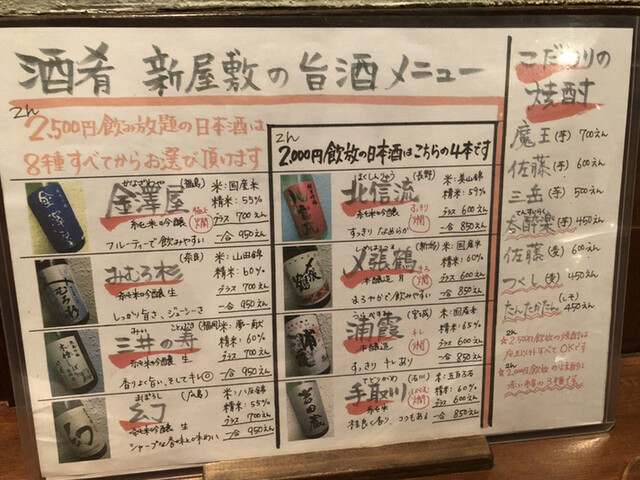 酒肴 新屋敷の旨酒メニュー
2,500円飲み放題の日本酒は
8種すべてからお選び頂けます
かなざわや
金澤屋
(福島)
純米吟醸
フルーティーで飲みやすい
米:国産米
精米:55%
グラス 700えん
一合 950えん
みむろ杉
(奈良)
純米吟醸 生
しっかり旨さ、ジューシーさ
米:山田錦
精米:60%
グラス 700えん
一合 950えん
三井の寿
(福岡)
純米吟醸 生
香りよく旨い、そしてキレ◎
米:夢一献
精米:60%
グラス 700えん
一合 950えん
まぼろし
幻
(広島)
純米吟醸 生
シャープな香味と味わい
米:八反錦
精米:55%
グラス 700えん
一合 950えん
2,000円飲放の日本酒はこちらの4本です
ほくしんりゅう
北信流
(長野)
純米吟醸
米:美山錦
精米:59%
グラス 600えん
一合 850えん
〆張鶴
(新潟)
本醸造 月
まろやかで飲みやすい
米:国産米
グラス 600えん
一合 850えん
浦霞
(宮城)
本醸造
すっきり キレあり
米:国産米
精米:65%
グラス 600えん
一合 850えん
てどりがわ
手取川
(石川)
米:五百万石
精米:60%
グラス 600えん
一合 850えん
こだわりの
焼酎
魔王(芋) 700えん
佐藤(芋) 600えん
三岳(芋) 500えん
てんすいらく
天酔楽(芋) 450えん
佐藤(麦) 600えん
つくし(麦) 450えん
たんたかたん(しそ) 450えん
★2,500円飲放の焼酎は